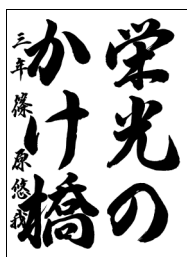 栄光の
かけ橋
三年 篠原悠我